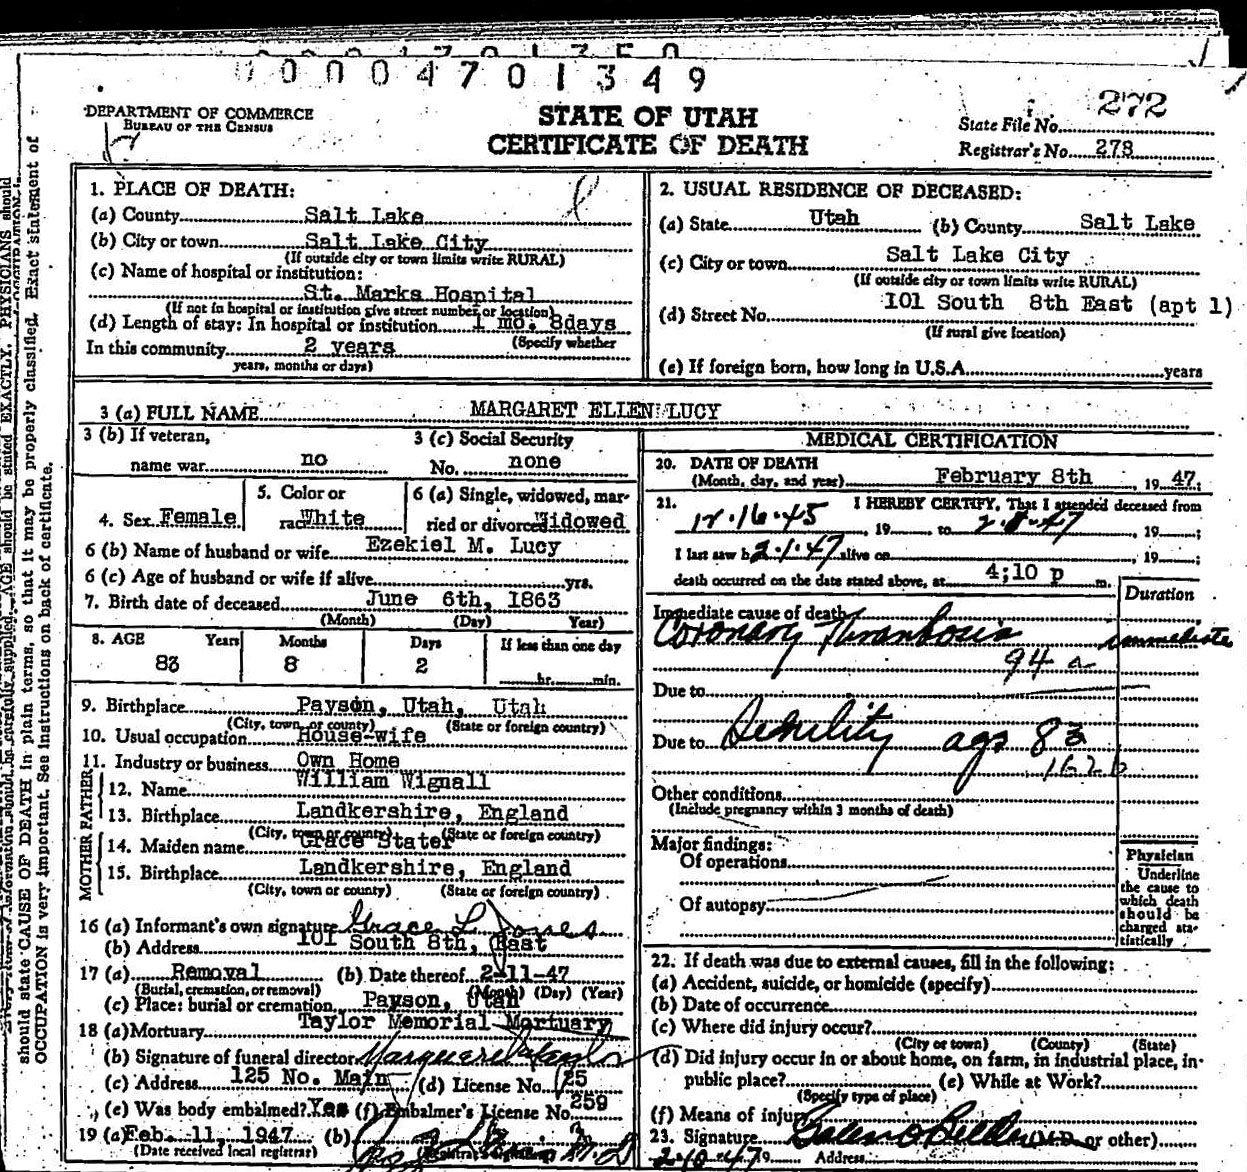 00004701349
DEPARTMENT OF COMMERCE
BUREAU OF THE CENSUS
STATE OF UTAH
CERTIFICATE OF DEATH
272
State File No.
Registrar's No. 278
1. PLACE OF DEATH:
(a) County Salt Lake
(b) City or town Salt Lake City
(If outside city or town limits write RURAL)
(c) Name of hospital or institution:
St. Marks Hospital
(If not in hospital or institution give street number or location)
(d) Length of stay: In hospital or institution 1 mo. 8days
(Specify whether
In this community 2 years
years, months or days)
2. USUAL RESIDENCE OF DECEASED:
(a) State Utah (b) County Salt Lake
(c) City or town Salt Lake City
(If outside city or town limits write RURAL)
(d) Street No. 101 South 8th East (apt 1)
(If rural give location)
(e) If foreign born, how long in U.S.A. years
3 (a) FULL NAME MARGARET ELLEN LUCY
3 (b) If veteran,
name war no
3 (c) Social Security
No. none
4. Sex Female
5. Color or
race White
6 (a) Single, widowed, mar-
ried or divorced Widowed
6 (b) Name of husband or wife Ezekiel M. Lucy
6 (c) Age of husband or wife if alive yrs.
7. Birth date of deceased June 6th, 1863
(Month) (Day) Year)
8. AGE Years Months Days If less than one day
83 8 2
hr. min.
9. Birthplace Payson, Utah, Utah
(City, town, or county) (State or foreign country)
10. Usual occupation House-wife
11. Industry or business Own Home
FATHER
12. Name William Wignall
13. Birthplace Landkershire, England
(City, town or county) (State or foreign country)
MOTHER
14. Maiden name Grace Stater
15. Birthplace Landkershire, England
(City, town or county) (State or foreign country)
16 (a) Informant's own signature Grace L. Jones
(b) Address 101 South 8th, East
17 (a) Removal (b) Date thereof 2-11-47
(Burial, cremation, or removal) (Month) (Day) (Year)
(c) Place: burial or cremation Payson, Utah
18 (a) Mortuary Taylor Memorial Mortuary
(b) Signature of funeral director
(c) Address 125 No. Main (d) License No. 25
(e) Was body embalmed? Yes (f) Embalmer's License No. 259
19 (a) Feb. 11, 1947 (b)
(Date received local registrar)
MEDICAL CERTIFICATION
20. DATE OF DEATH
(Month, day, and year) February 8th, 19 47.
21. I HEREBY CERTIFY, That I attended deceased from
12.16.45, 19 to 2.8.47, 19 ;
I last saw h 2.1.47 alive on , 19 ;
death occurred on the date stated above, at 4;10 p m.
Duration
Immediate cause of death
Coronary Thrombosis immediate
94 a
Due to
Due to Senility age 83
162 b
Other conditions
(Include pregnancy within 3 months of death)
Major findings:
Of operations
Of autopsy
Physician
Underline
the cause to
which death
should be
charged sta-
tistically
22. If death was due to external causes, fill in the following:
(a) Accident, suicide, or homicide (specify)
(b) Date of occurrence
(c) Where did injury occur?
(City or town) (County) (State)
(d) Did injury occur in or about home, on farm, in industrial place, in
public place? (e) While at Work?
(Specify type of place)
(f) Means of injury
23. Signature (M.D. or other)
2-10-47 19 Address
should state CAUSE OF DEATH in plain terms, so that it may be properly classified. Exact statement of
OCCUPATION is very important. See instructions on back of certificate.